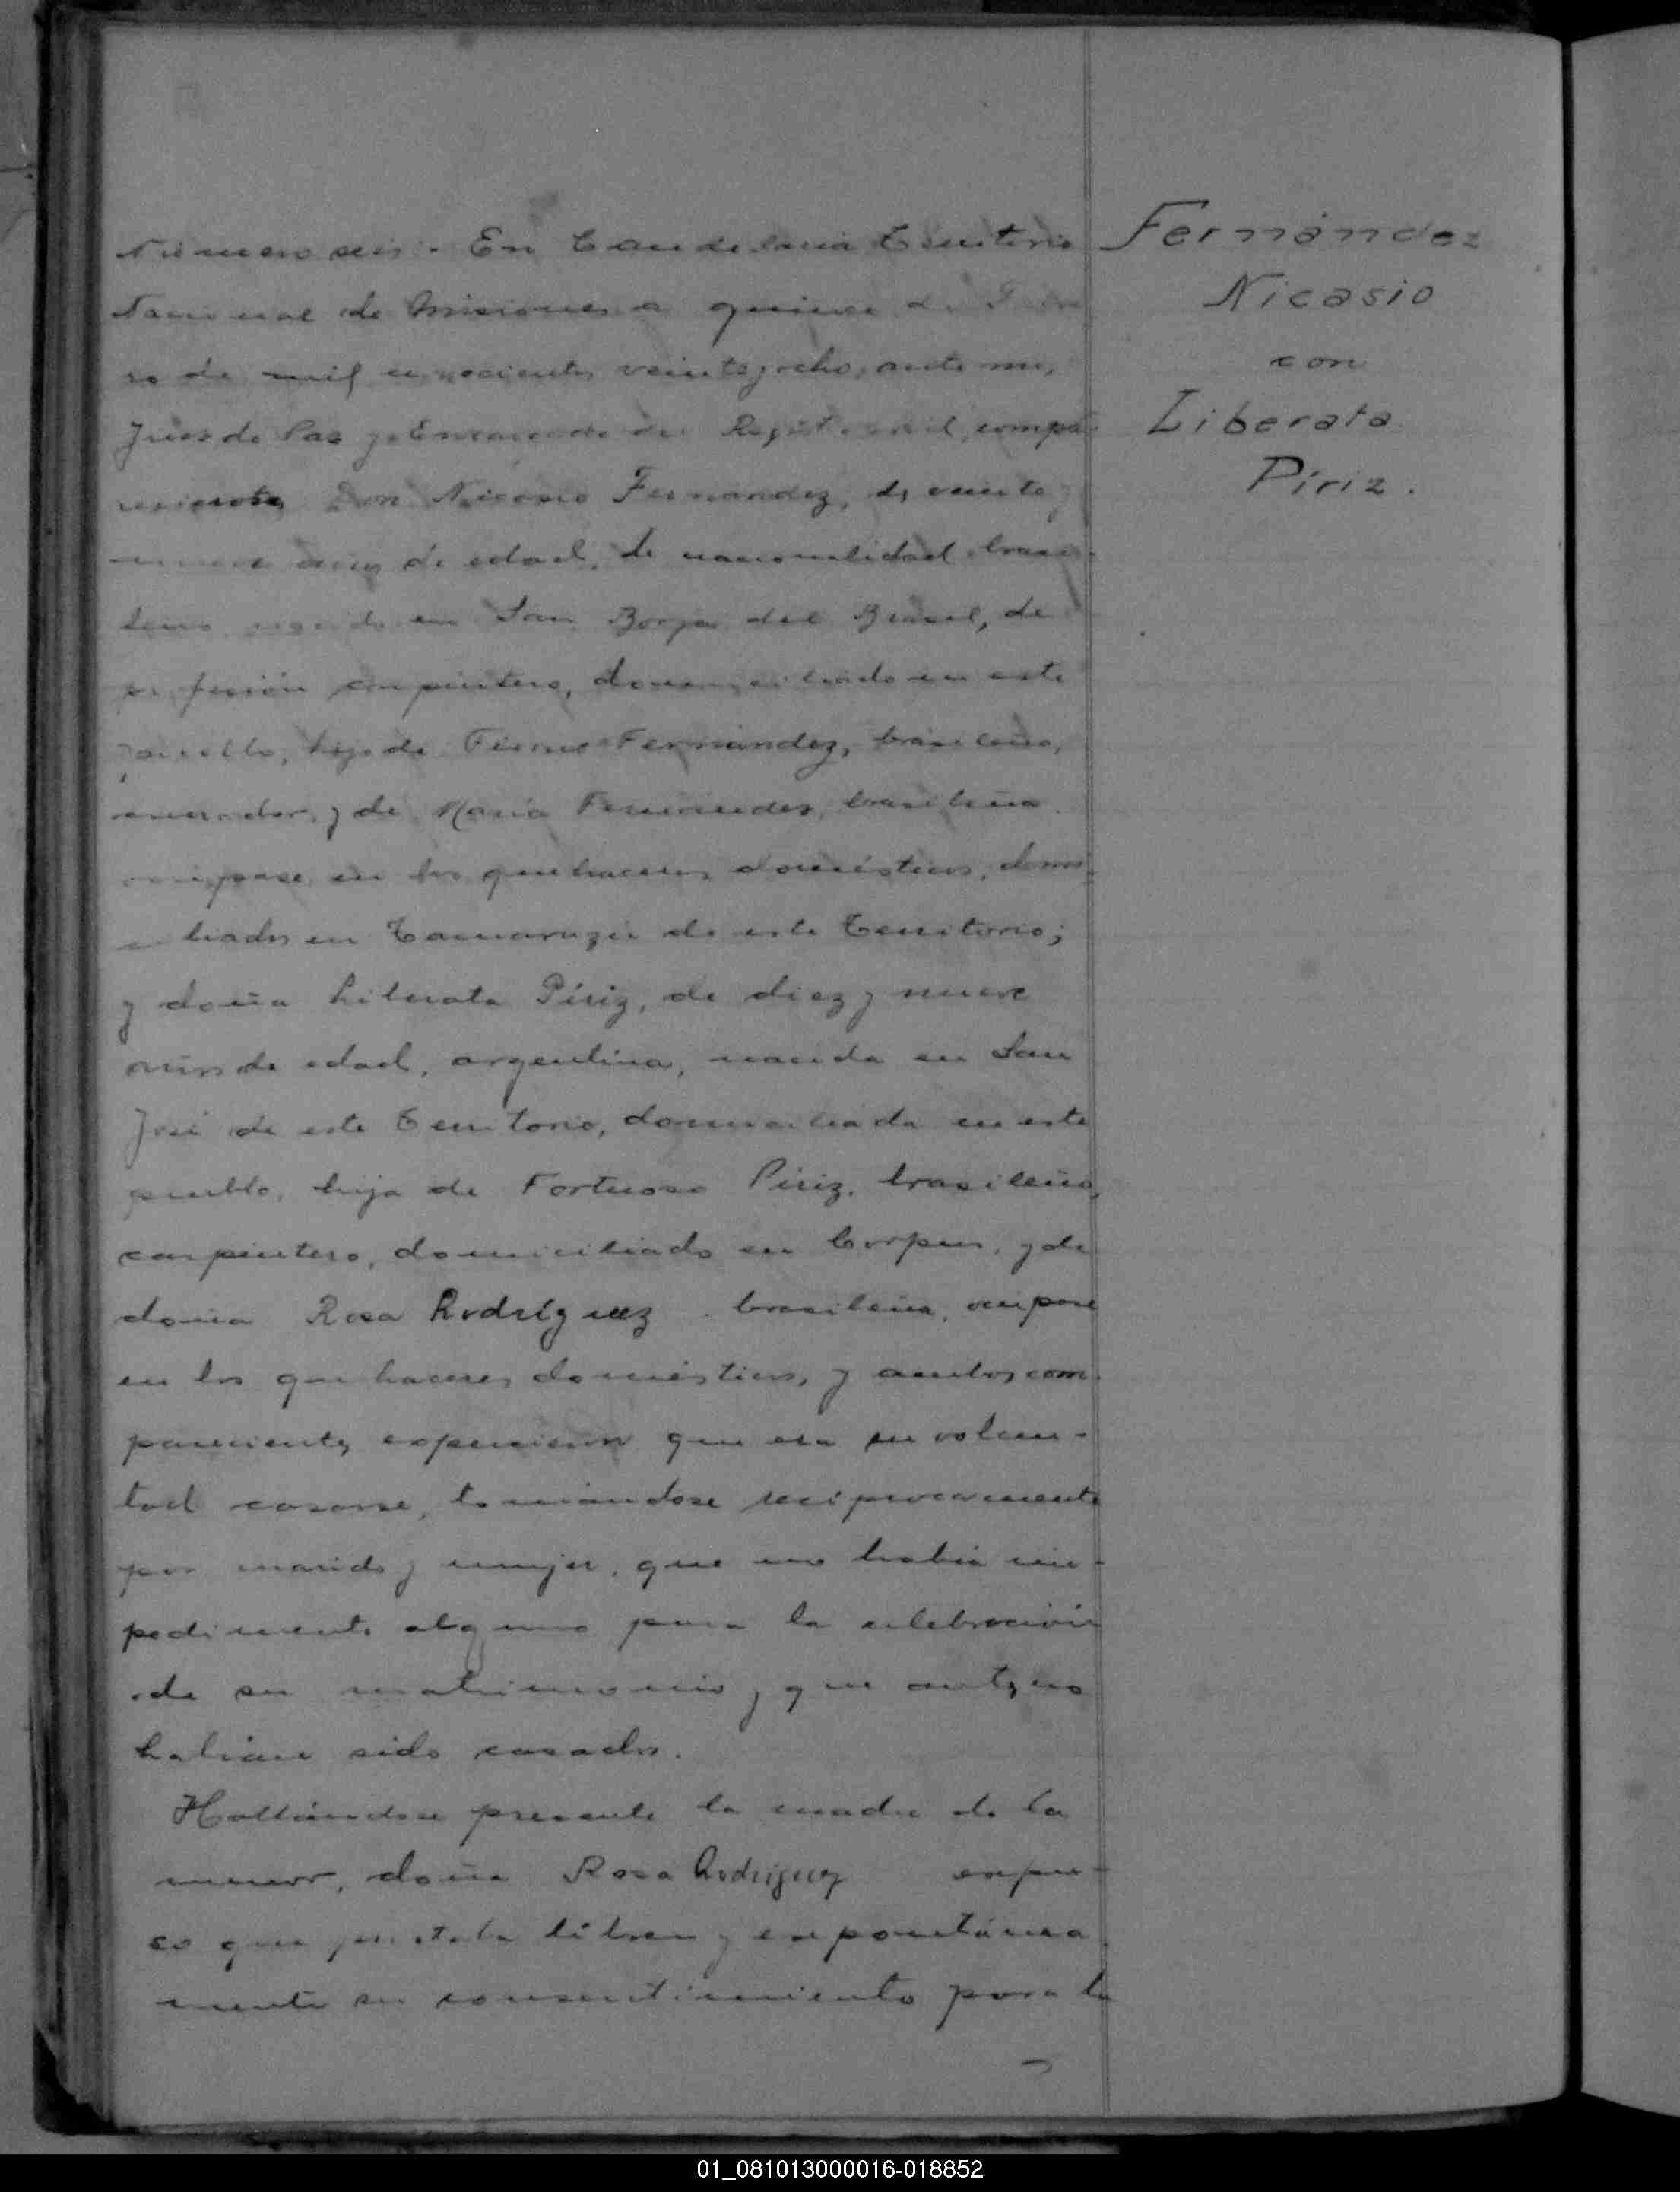 Número seis.- En Candelaria Territorio
Nacional de Misiones a quince de
ro de mil novecientos veinte y ocho, ante mi,
Juez de Paz y Encargado del Registro Civil, compa-
recieron Don Nicasio Fernández, de veinte y
años de edad, de nacionalidad brasi-
leino, nacido en San Borja del Brasil, de
profesión carpintero, domiciliado en este
pueblo, hijo de Fernández, brasileño,
y de María Fernandez, brasileña
ocupase en los quehaceres domésticos, domi-
ciliados en de este Territorio;
y doña Liberata Píriz, de diez y nueve
años de edad, argentina, nacida en San
José de este Territorio, domiciliada en este
pueblo, hija de Fortuoso Píriz, brasileño,
carpintero, domiciliado en Corpus, y de
doña Rosa Rodríguez . brasileña, ocupase
en los quehaceres domésticos, y ambos com-
parecientes expusieron que era su volun-
tad casarse, tomándose recíprocamente
por marido y mujer, que no había im-
pedimento alguno para la celebración
de su matrimonio y que antes no
habían sido casados.
Hallándose presente la madre de la
menor, doña Rosa Rodriguez expu-
so que prestaba libre y espontánea
mente su consentimiento para la
Fernández
Nicasio
con
Liberata
Píriz.
01_081013000016-018852